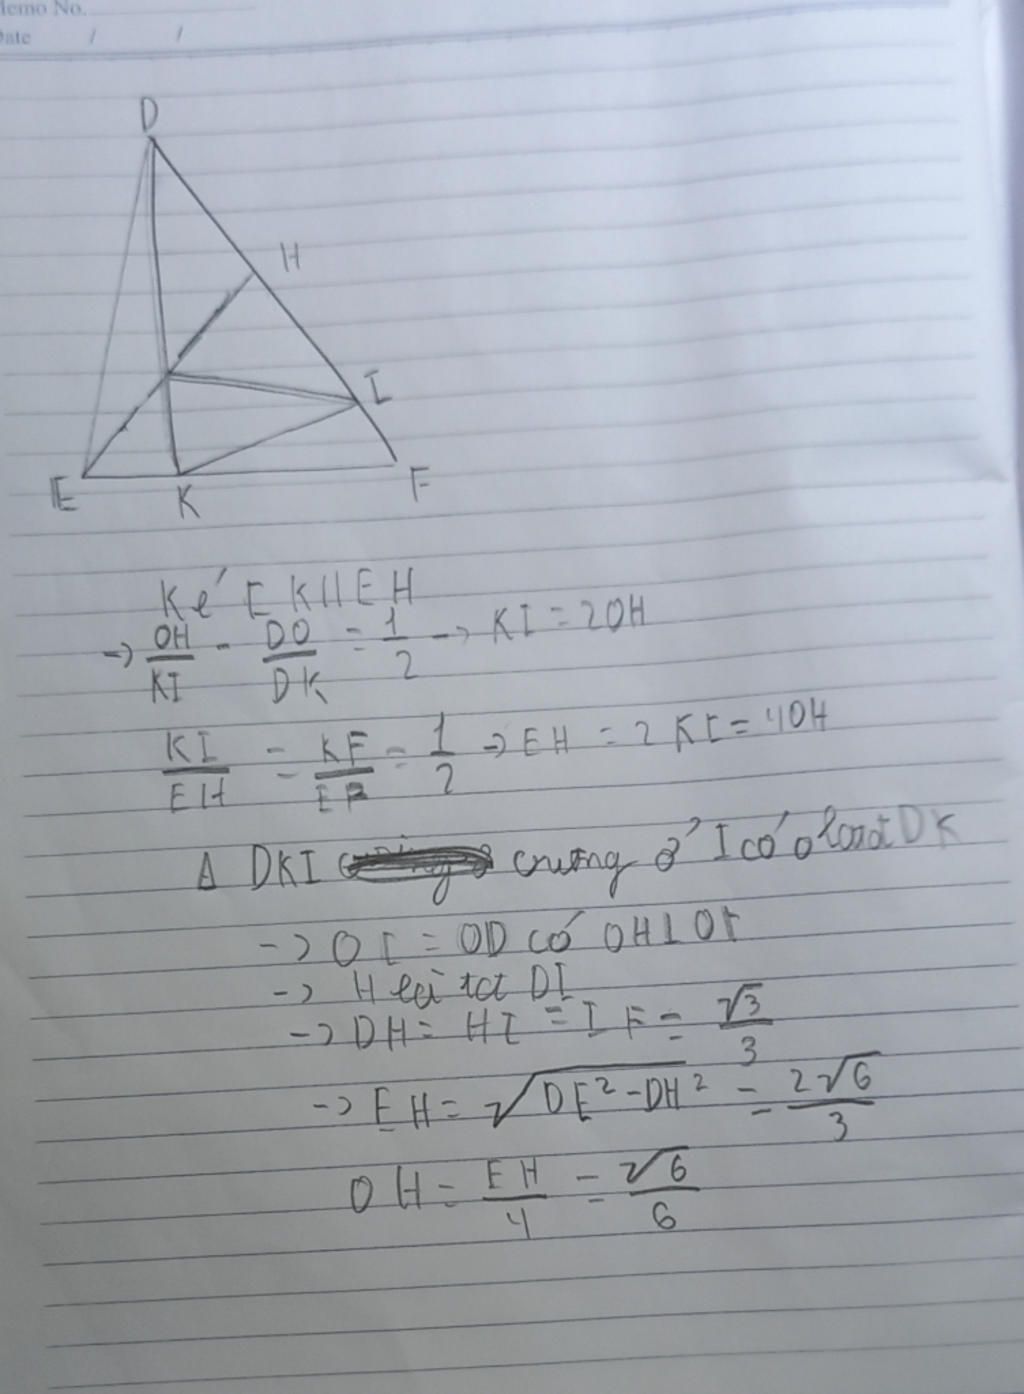 Memo No.
Date / /
D
H
I
E
K
F
Kẻ EK // EH
→ OH/KI = DO/DK = 1/2 → KI = 2OH
KI/EH = KF/EF = 1/2 → EH = 2KI = 4OH
Δ DKI vuông ở I có O là tđ DK
→ OI = OD có OH ⊥ OI
→ H là tđ DI
→ DH = HI = IF = √3/3
→ EH = √DE² - DH² = 2√6/3
OH = EH/4 = √6/6